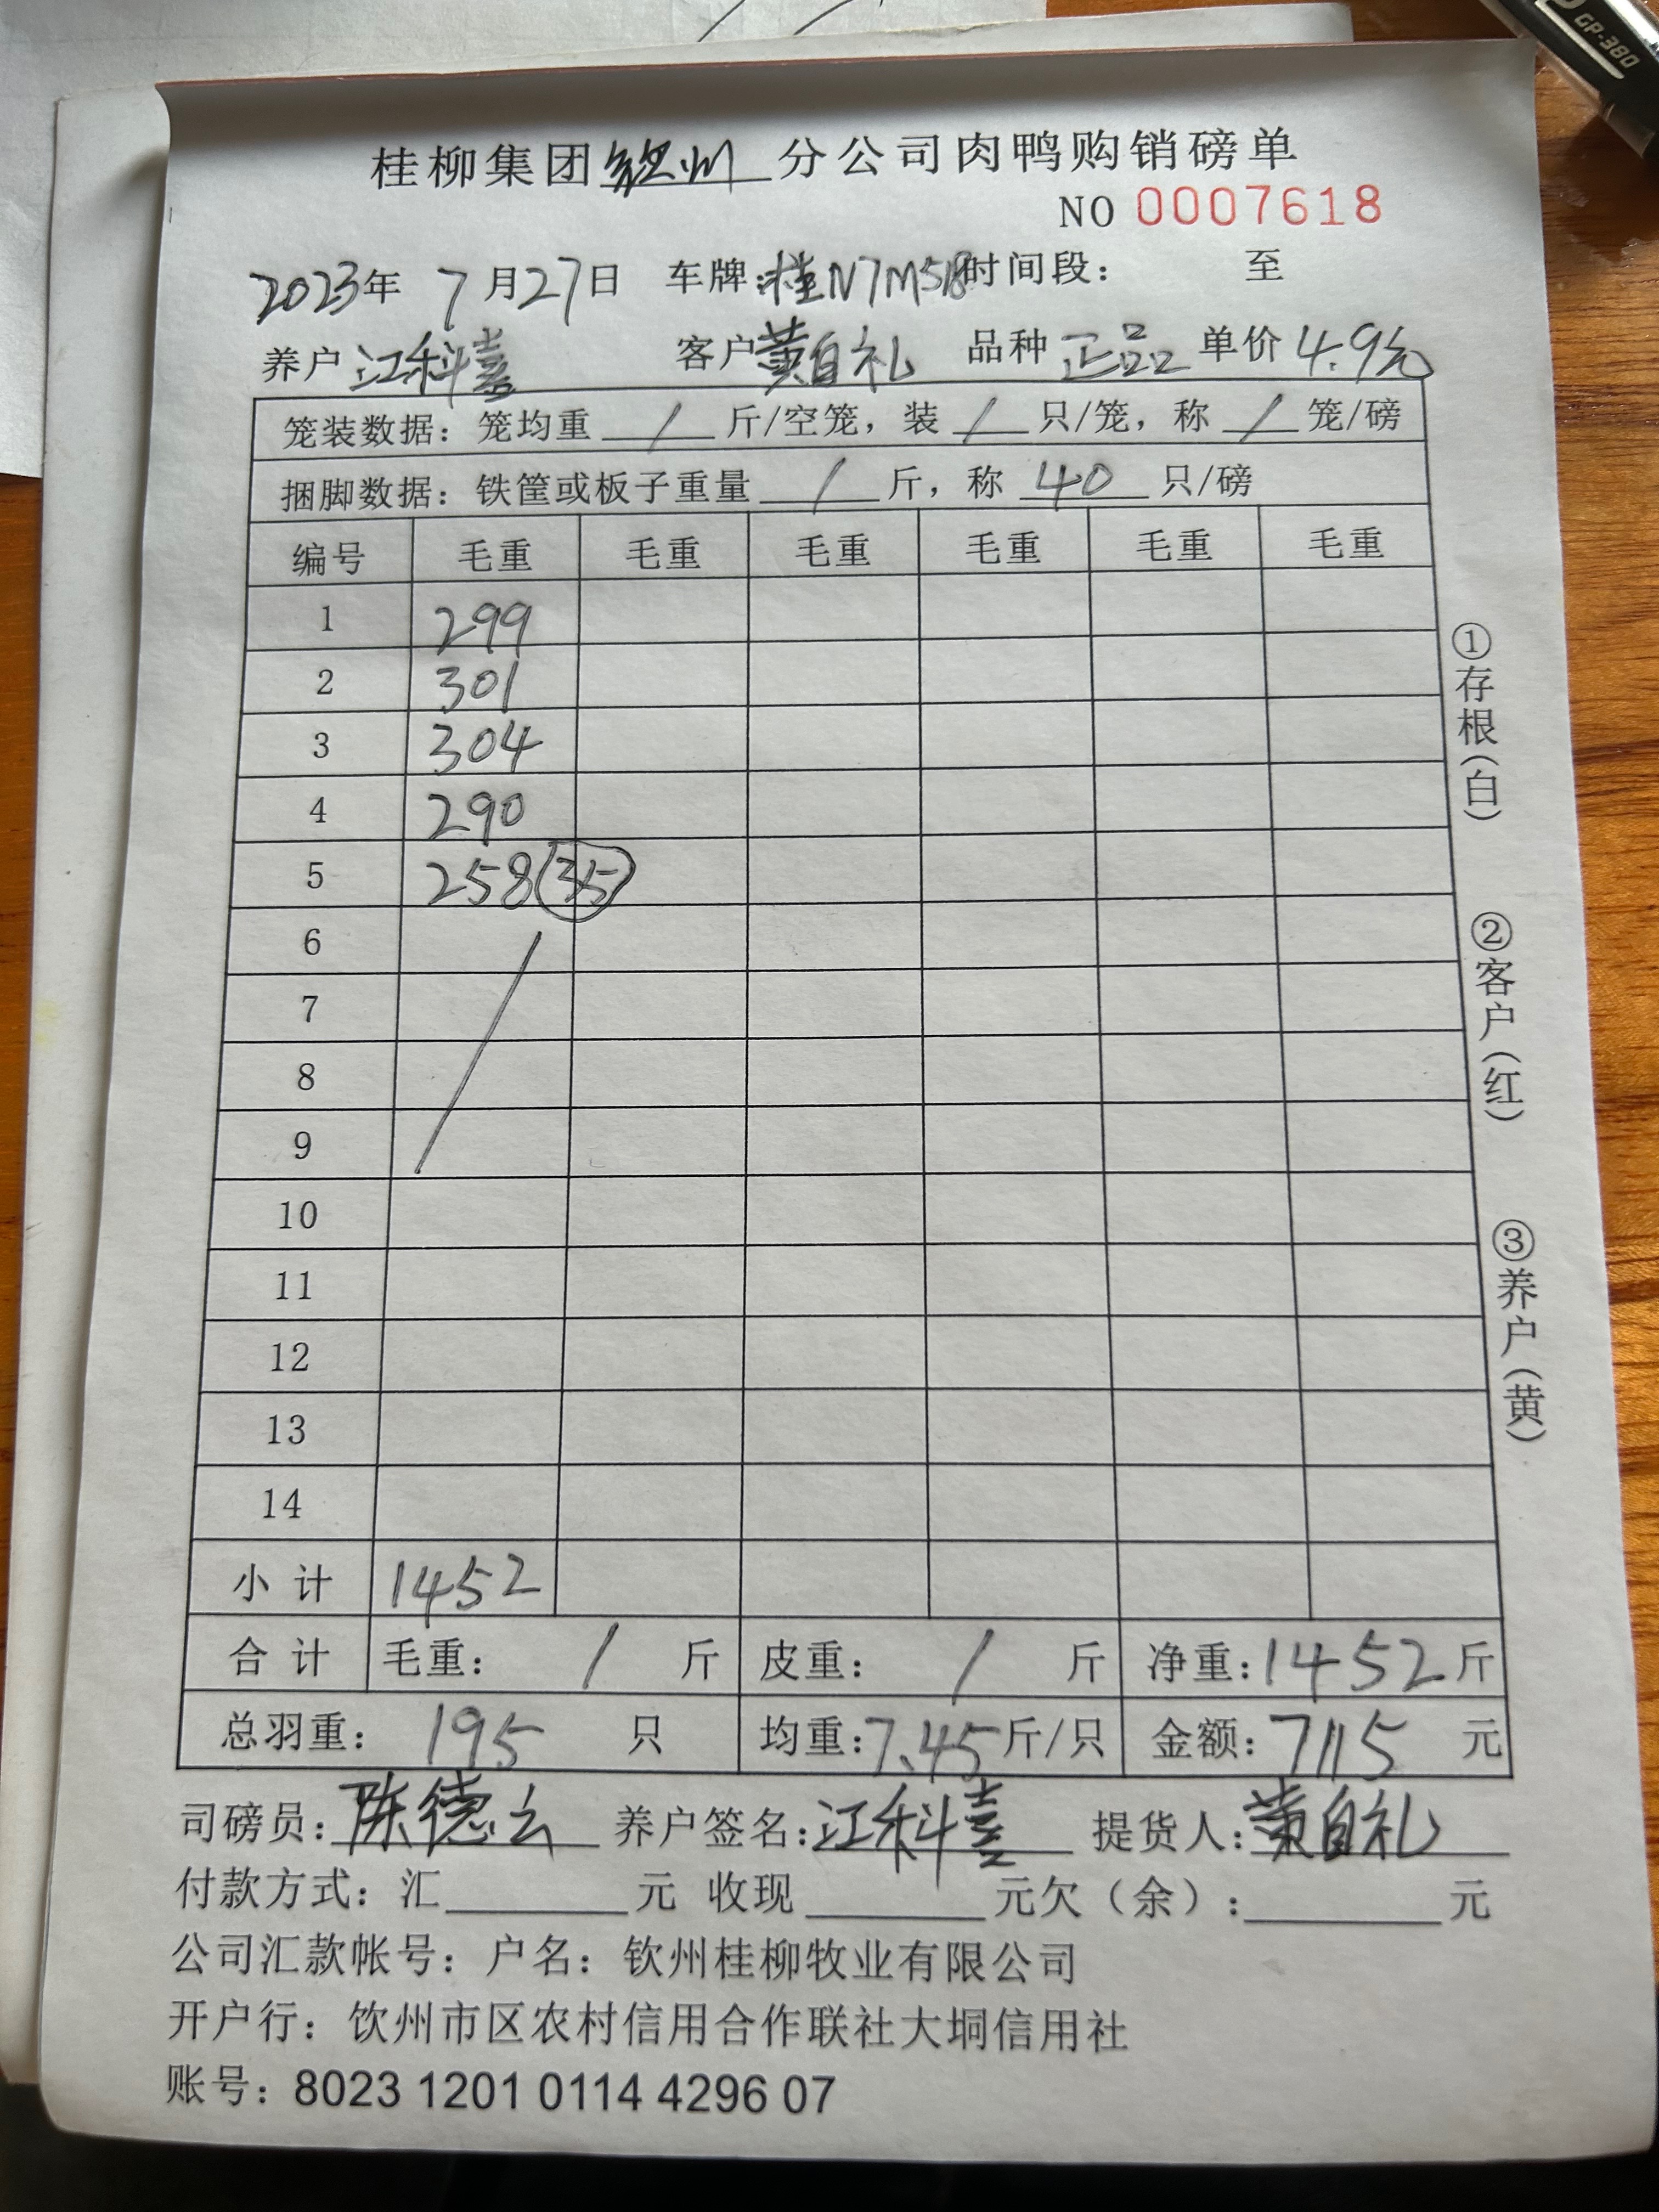 GP-380
桂柳集团钦州分公司肉鸭购销磅单
NO 0007618
2023年 7月27日 车牌:桂N7M518时间段: 至
养户 江科喜 客户 黄自礼 品种 正品 单价 4.9元
笼装数据: 笼均重 / 斤/空笼, 装 / 只/笼, 称 / 笼/磅
捆脚数据: 铁筐或板子重量 / 斤, 称 40 只/磅
编号 毛重 毛重 毛重 毛重 毛重 毛重
1 299
2 301
3 304
4 290
5 258 (35)
6
7
8
9
10
11
12
13
14
小计 1452
合计 毛重: / 斤 皮重: / 斤 净重:1452斤
总羽重: 195 只 均重:7.45斤/只 金额:7115 元
①存根(白)
②客户(红)
③养户(黄)
司磅员:陈德云 养户签名:江科喜 提货人:黄自礼
付款方式: 汇 元 收现 元欠(余): 元
公司汇款帐号: 户名: 钦州桂柳牧业有限公司
开户行: 钦州市区农村信用合作联社大垌信用社
账号: 8023 1201 0114 4296 07